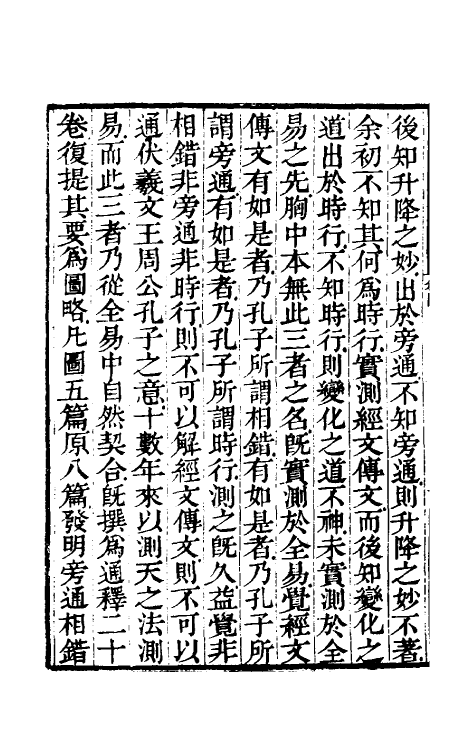 後知升降之妙出於旁通不知旁通則升降之妙不著
余初不知其何爲時行實測經文傳文而後知變化之
道出於時行不知時行則變化之道不神未實測於全
易之先胸中本無此三者之名旣實測於全易覺經文
傳文有如是者乃孔子所謂相錯有如是者乃孔子所
謂旁通有如是者乃孔子所謂時行測之旣久益覺非
相錯非旁通非時行則不可以解經文傳文則不可以
通伏羲文王周公孔子之意十數年來以測天之法測
易而此三者乃從全易中自然契合旣撰爲通釋二十
卷復提其要爲圖略凡圖五篇原八篇發明旁通相錯